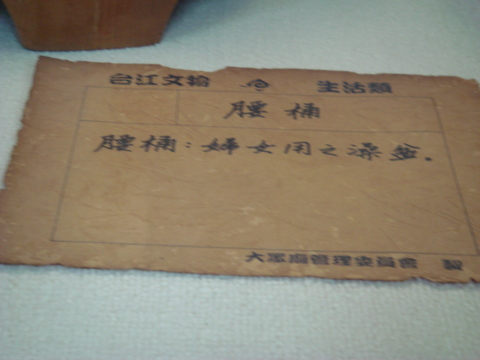 台江文物 生活類
腰桶
腰桶：婦女用之澡盆．
大眾廟管理委員會 製